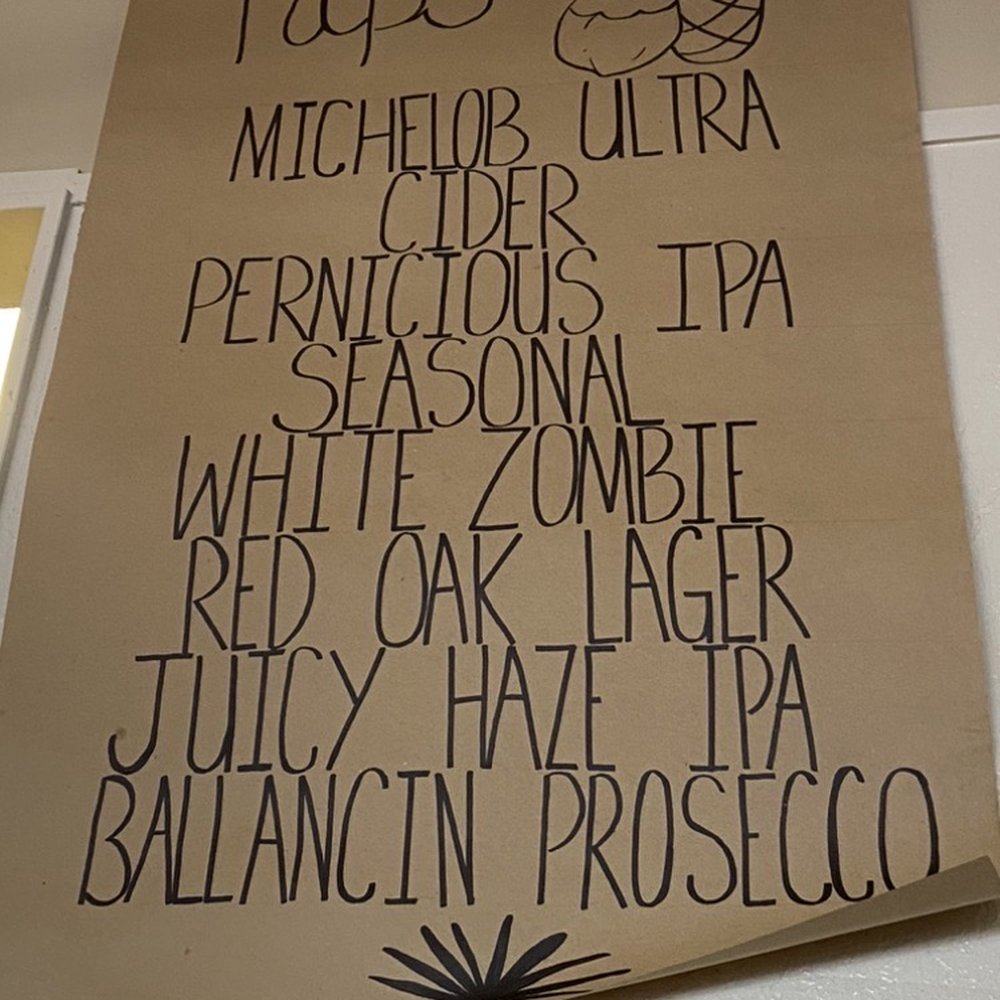 Taps
MICHELOB ULTRA
CIDER
PERNICIOUS IPA
SEASONAL
WHITE ZOMBIE
RED OAK LAGER
JUICY HAZE IPA
BALLANCIN PROSECCO